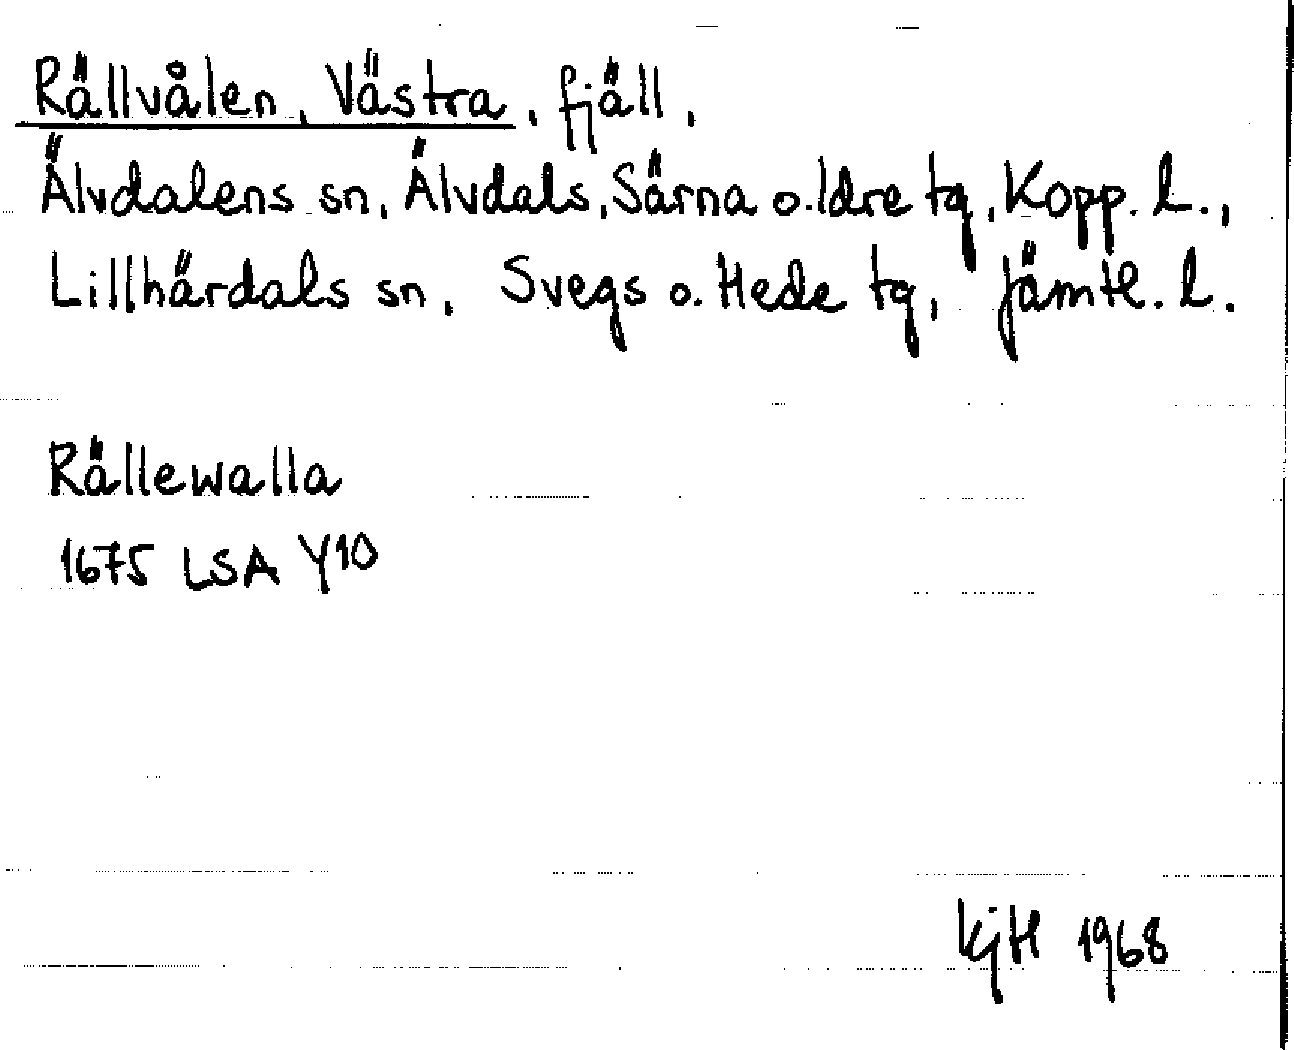 Rällvålen, Västra, fjäll,
Älvdalens sn, Älvdals, Särna o. Idre tg, Kopp. l.,
Lillhärdals sn, Svegs o. Hede tg, Jämtl. l.
Rällewalla
1675 LSA Y10
KjH 1968